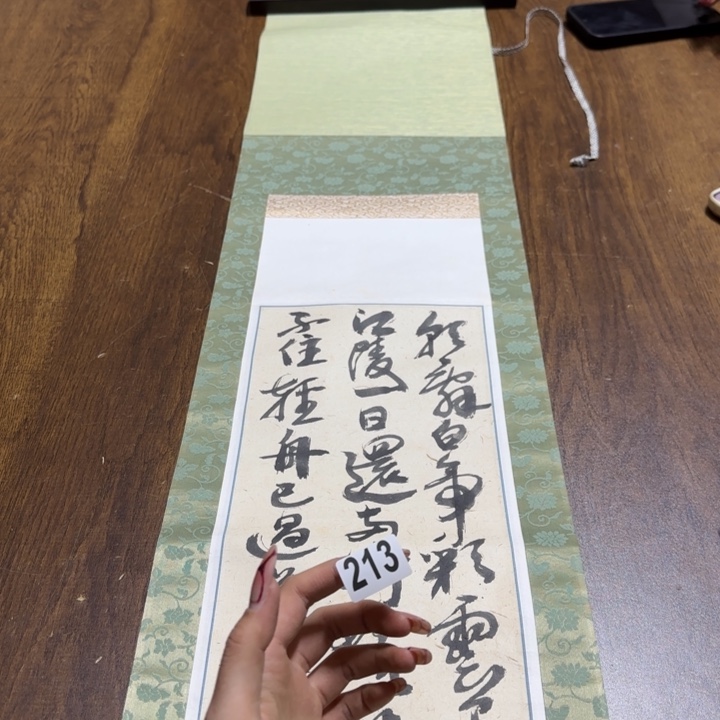 朝辭白帝彩雲
江陵一日還兩
不住輕舟已過
213